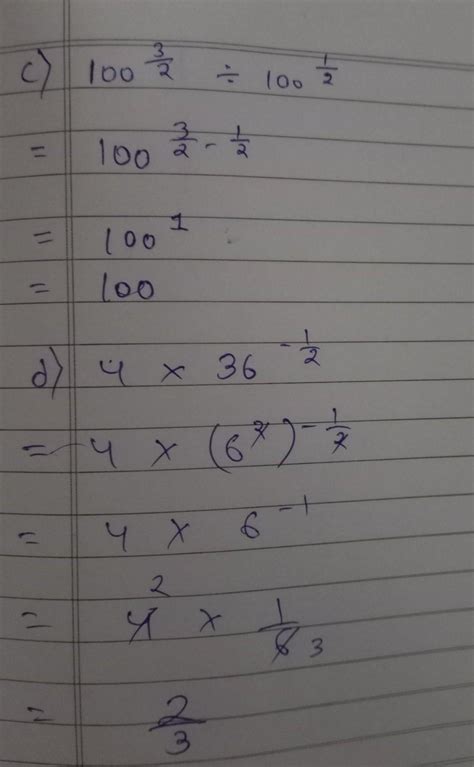 c) 100^(3/2) ÷ 100^(1/2)
= 100^(3/2 - 1/2)
= 100^1
= 100
d) 4 × 36^(-1/2)
= 4 × (6^2)^(-1/2)
= 4 × 6^(-1)
2
= 4 × 1/6 3
= 2/3